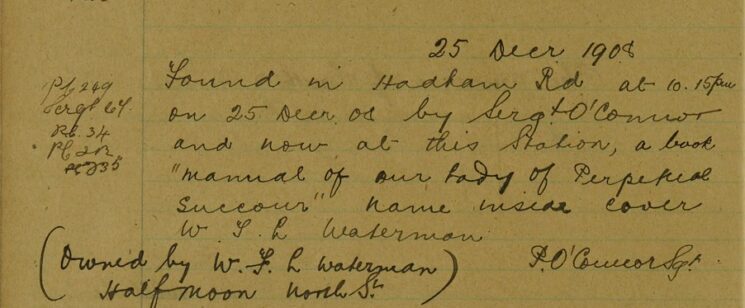 25 Decr 1908
Found in Hadham Rd at 10.15pm
on 25 Decr 08 by Sergt O'Connor
and now at this Station, a book
"Manual of our Lady of Perpetual
Succour" name inside cover
W. F. L Waterman
P. O'Connor Sgt
(Owned by W. F. L Waterman)
Half moon North St
Pc 249
Sergt 64.
Pc. 34
Pc 202
Pc 235